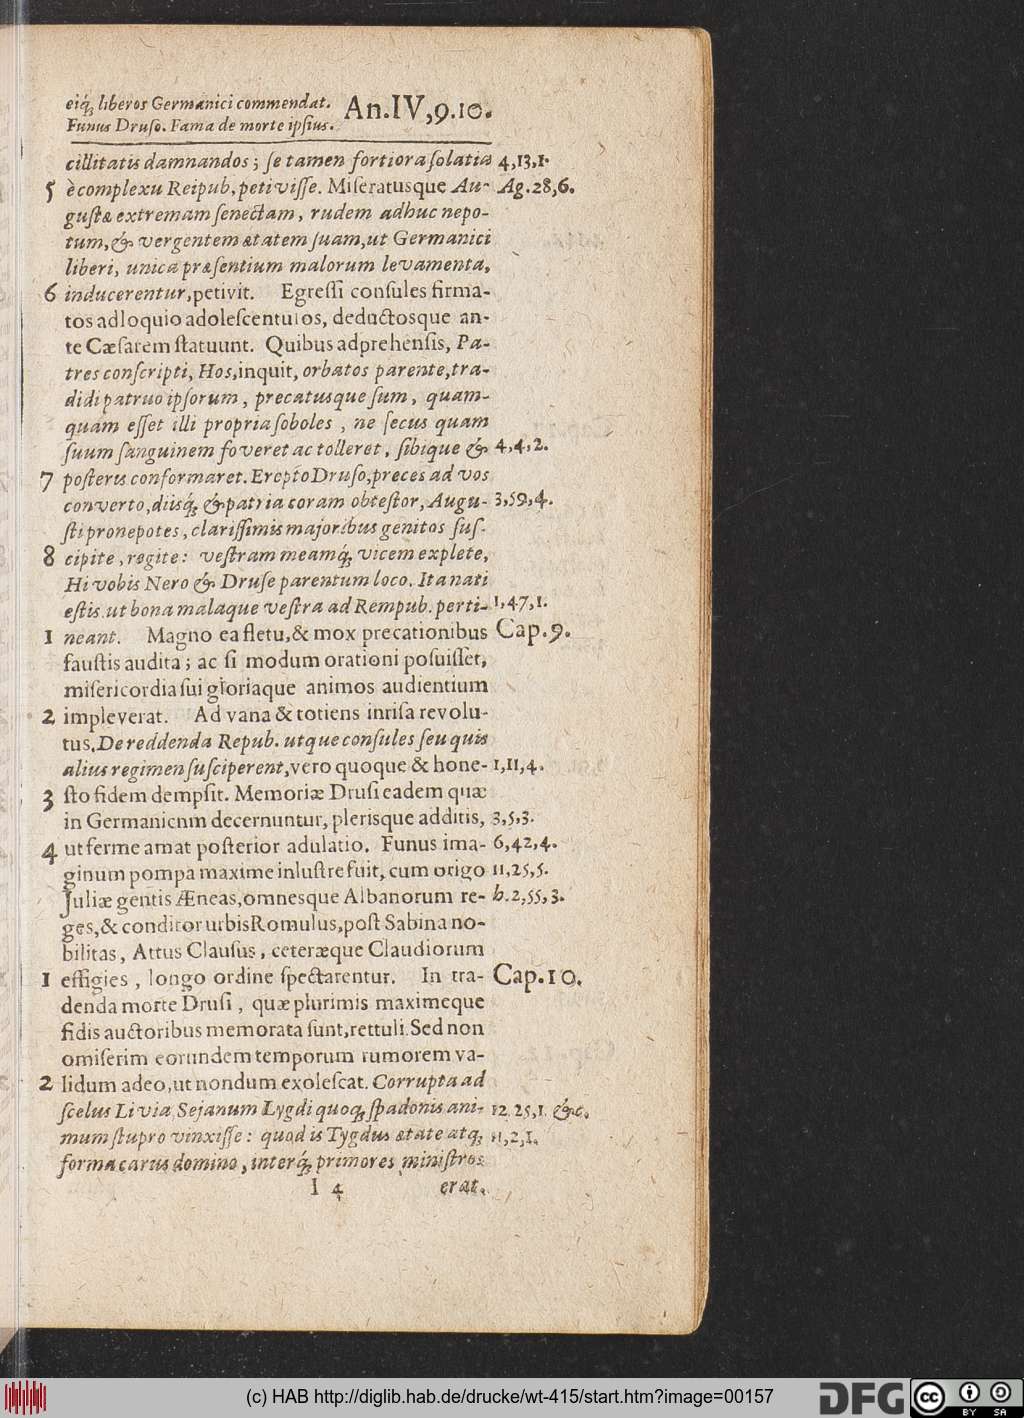 eiq́; liberos Germanici commendat.
Funus Druso. Fama de morte ipsius.
An.IV,9.10.
cillitatis damnandos; ſe tamen fortiora ſolatia 4,13,1.
5 è complexu Reipub, petiviſſe. Miſeratusque Au- Ag.28,6.
guſtæ extremam ſenectam, rudem adhuc nepo-
tum, & vergentem ætatem ſuam, ut Germanici
liberi, unica præſentium malorum levamenta,
6 inducerentur, petivit. Egreſſi conſules firma-
tos adloquio adoleſcentulos, deductosque an-
te Cæſarem ſtatuunt. Quibus adprehenſis, Pa-
tres conſcripti, Hos, inquit, orbatos parente, tra-
didi patruo ipſorum, precatusque ſum, quam-
quam eſſet illi propria ſoboles, ne ſecus quam
ſuum ſanguinem foveret ac tolleret, ſibique & 4,4,2.
7 poſteris conformaret. Erepto Druſo, preces ad vos
converto, diisq́; & patria coram obteſtor, Augu- 3,59,4.
ſti pronepotes, clariſſimis majoribus genitos ſuſ-
8 cipite, regite: veſtram meamq́; vicem explete,
Hi vobis Nero & Druſe parentum loco. Ita nati
eſtis, ut bona malaque veſtra ad Rempub. perti- 1,47,1.
1 neant. Magno ea fletu, & mox precationibus Cap.9.
fauſtis audita; ac ſi modum orationi poſuiſſet,
miſericordia ſui gloriaque animos audientium
2 impleverat. Ad vana & totiens inriſa revolu-
tus, De reddenda Repub. utque conſules ſeu quis
alius regimen ſuſciperent, vero quoque & hone- 1,11,4.
3 ſto fidem dempſit. Memoriæ Druſi eadem quæ
in Germanicnm decernuntur, plerisque additis, 3,5,3.
4 ut ferme amat poſterior adulatio. Funus ima- 6,42,4.
ginum pompa maxime inluſtre fuit, cum origo 11,25,5.
Juliæ gentis Æneas, omnesque Albanorum re- h.2,55,3.
ges, & conditor urbis Romulus, poſt Sabina no-
bilitas, Attus Clauſus, ceteræque Claudiorum
1 effigies, longo ordine ſpectarentur. In tra- Cap.10.
denda morte Druſi, quæ plurimis maximeque
fidis auctoribus memorata ſunt, rettuli. Sed non
omiſerim eorundem temporum rumorem va-
2 lidum adeo, ut nondum exoleſcat. Corrupta ad
ſcelus Livia, Sejanum Lygdi quoq; ſpadonis ani- 12.25,1. &c.
mum ſtupro vinxiſſe: quod is Tygdus ætate atq; 11,2,1.
forma carus domino, interq́; primores miniſtros
I 4 erat.
(c) HAB http://diglib.hab.de/drucke/wt-415/start.htm?image=00157
DFG
cc BY SA